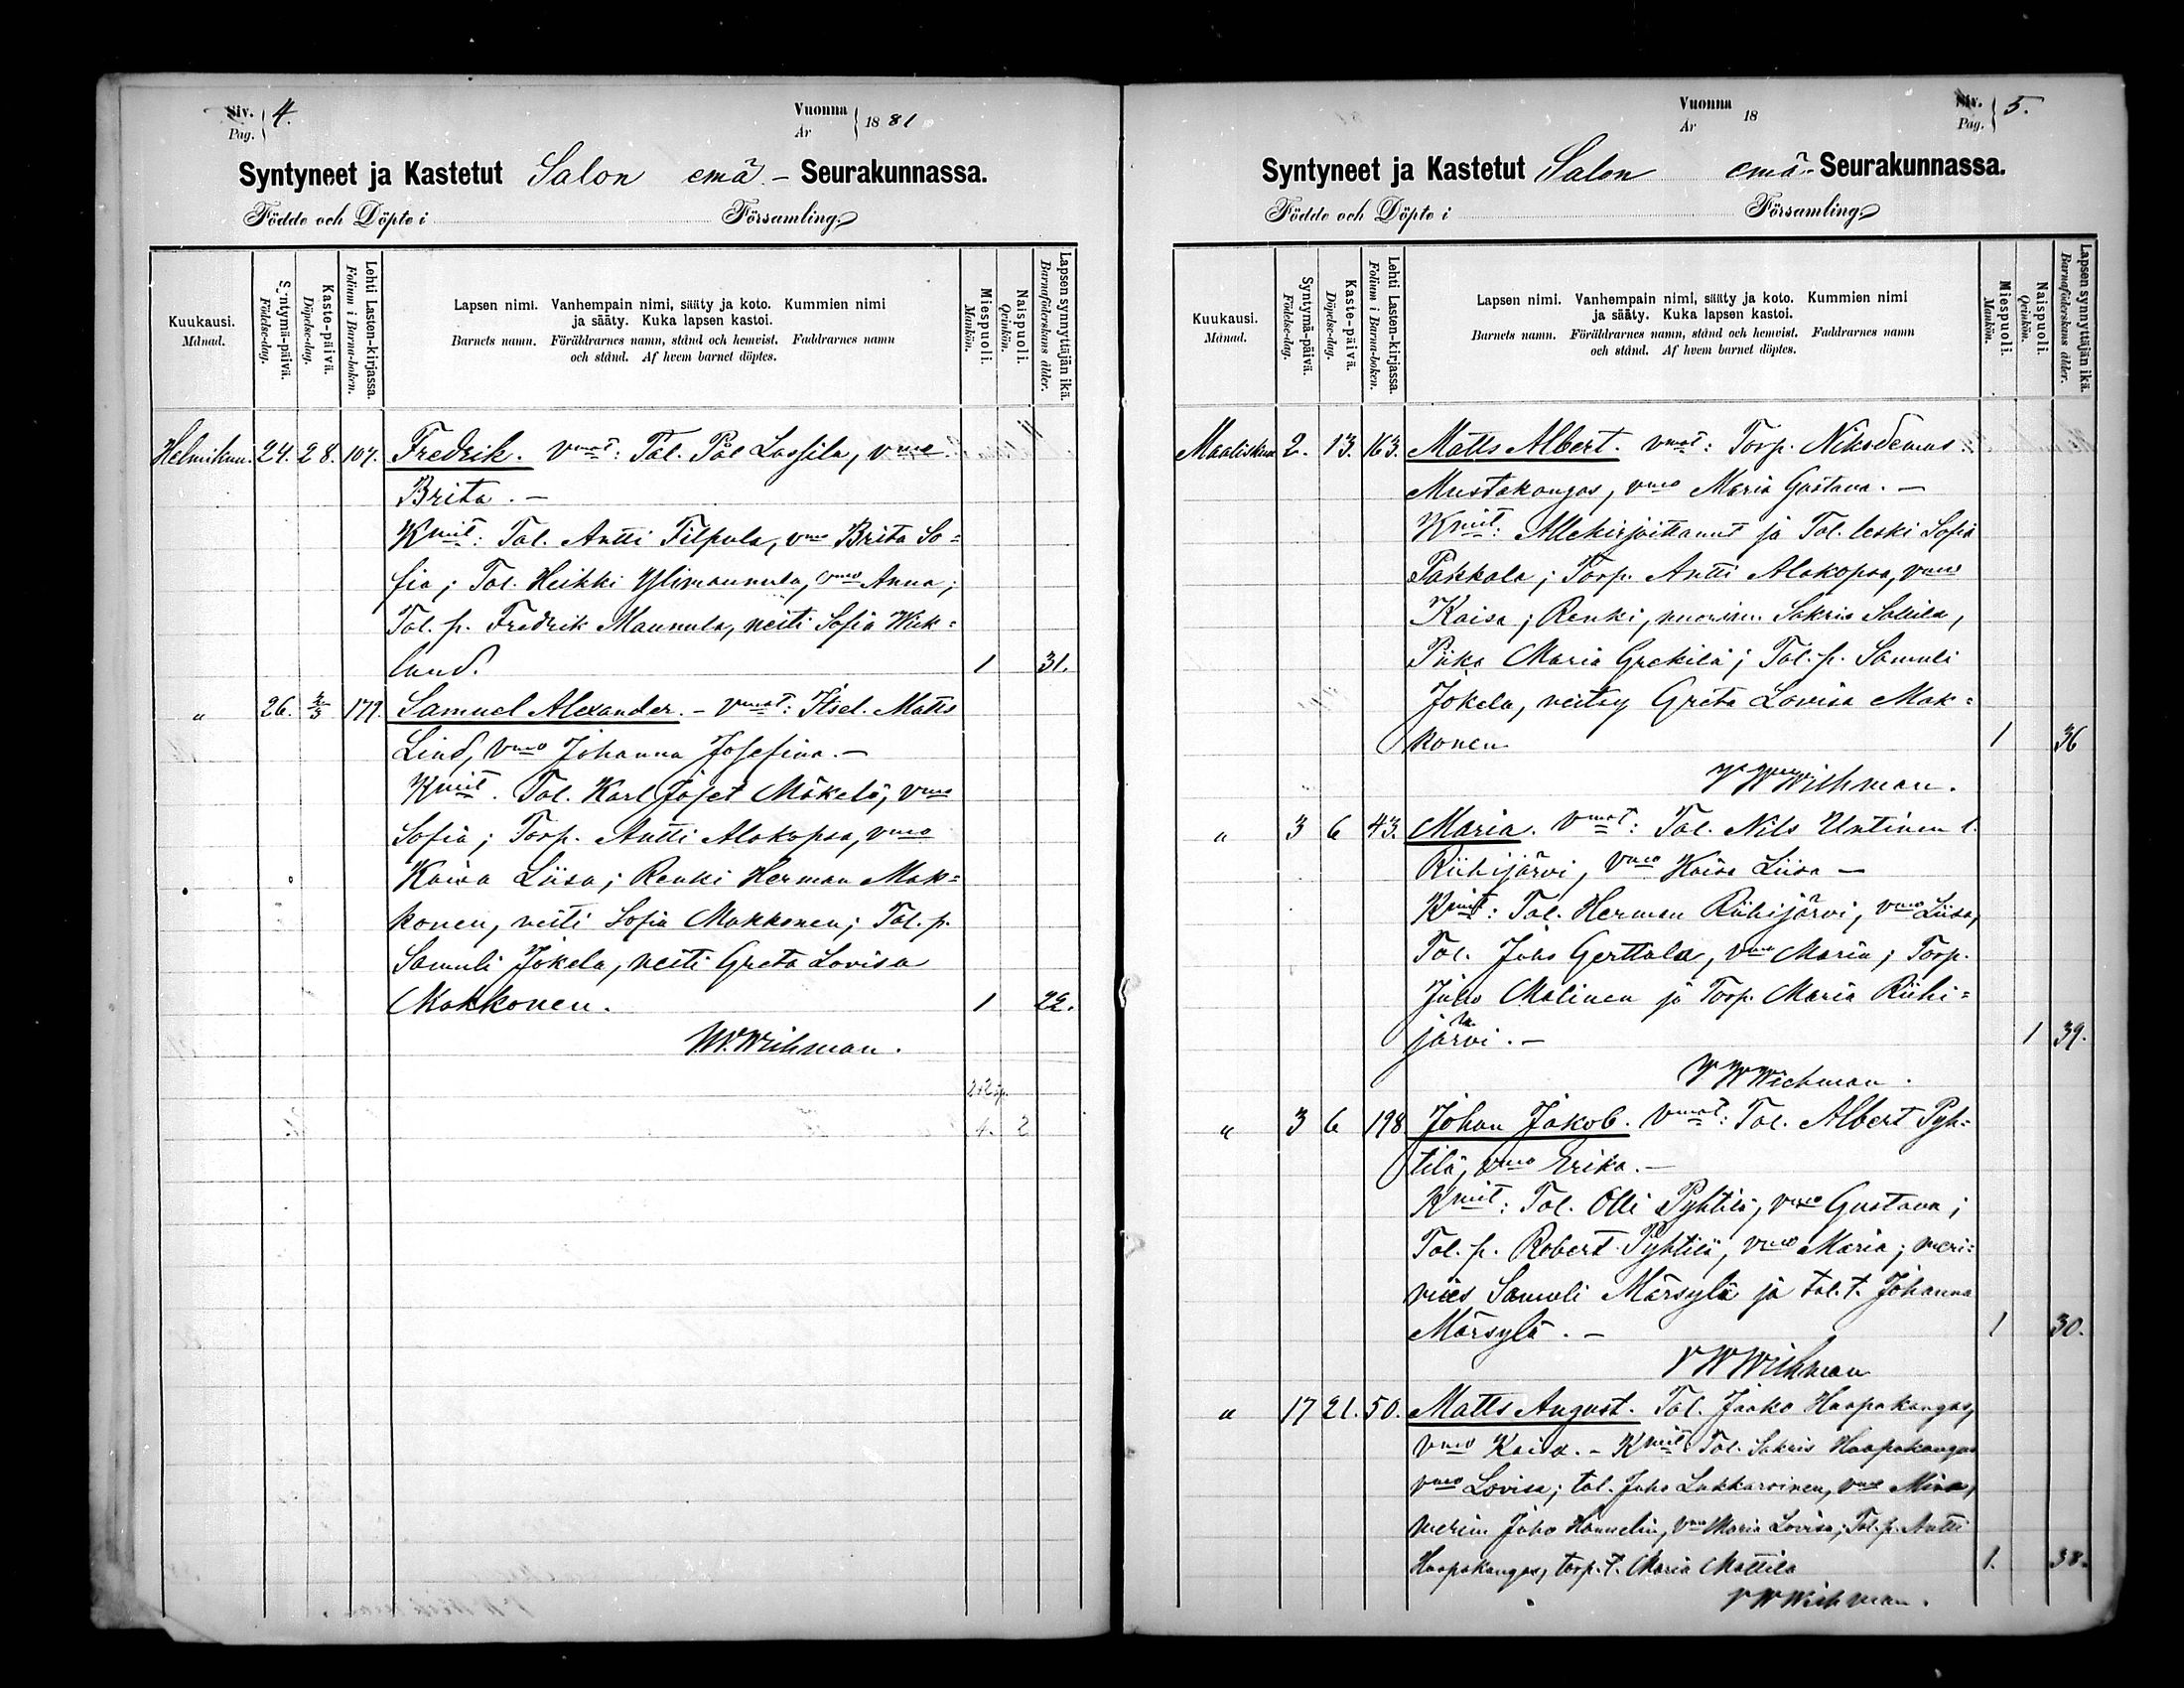 Siv. Pag. 4.
Vuonna År 1881
Syntyneet ja Kastetut Salon emä - Seurakunnassa.
Födde och Döpte i Församling.
Kuukausi. Månad.
Syntymä-päivä. Födelse-dag.
Kasto-päivä. Döpelse-dag.
Lehti Lasten-kirjassa. Folium i Barna-boken.
Lapsen nimi. Vanhempain nimi, sääty ja koto. Kummien nimi
ja sääty. Kuka lapsen kastoi.
Barnets namn. Föräldrarnes namn, stånd och hemvist. Faddrarnes namn
och stånd. Af hvem barnet döptes.
Miespuoli. Mankön.
Naispuoli. Qvinkön.
Lapsen synnyttäjän ikä. Barnaföderskans ålder.
Helmikuu. 24. 28. 107. Fredrik. Vmat: Tal. Pål Lassila, vmo
Brita. —
Kmit: Tal. Antti Filpula, vmo Brita So=
fia; Tal. Heikki Ylimaunula, vmo Anna;
Tal. p. Fredrik Maunula, neiti Sofia Wik=
lund. 1 31.
" 26. 2/3 179. Samuel Alexander. - Vmat: Itsel. Matts
Lind, Vmo Johanna Josefina. —
Kmit. Tal. Karl Josef Mäkelä, vmo
Sofia; Torp. Antti Alakopsa, vmo
Kaisa Liisa; Renki Herman Mak=
konen, neiti Sofia Makkonen; Tal. p.
Samuli Jokela, neiti Greta Lovisa
Makkonen. 1 22.
V.W.Wichman.
4. 2
Siv. Pag. 5.
Vuonna År 18
Syntyneet ja Kastetut Salon emä- Seurakunnassa.
Födde och Döpte i Församling.
Kuukausi. Månad.
Syntymä-päivä. Födelse-dag.
Kaste-päivä. Döpelse-dag.
Lehti Lasten-kirjassa. Folium i Barna-boken.
Lapsen nimi. Vanhempain nimi, sääty ja koto. Kummien nimi
ja sääty. Kuka lapsen kastoi.
Barnets namn. Föräldrarnes namn, stånd och hemvist. Faddrarnes namn
och stånd. Af hvem barnet döptes.
Miespuoli. Mankön.
Naispuoli. Qvinkön.
Lapsen synnyttäjän ikä. Barnaföderskans ålder.
Maaliskuu 2. 13. 163. Matts Albert. Vmat: Torp. Nikodemus
Mustakangas, vmo Maria Gustava. —
Kmit: Allekirjoittanut ja Tal. leski Sofia
Pakkala; Torp. Antti Alakopsa, vmo
Kaisa; Renki, nuorim. Sakris
Piika Maria Grekilä; Tal. p. Samuli
Jokela, neitsy Greta Lovisa Mak=
konen 1 36
V W Wichman.
" 3 6 43. Maria. Vmat: Tal. Nils Untinen l.
Riihijärvi, Vmo Kaisa Liisa —
Kmit: Tal. Herman Riihijärvi, vmo Liisa,
Tal. Juho Gerttula, vmo Maria; Torp.
Juho Malinen ja Torp. Maria Riihi=
järvi. — 1 39.
V W Wichman.
" 3 6 198 Johan Jakob. Vmat: Tal. Albert Pyh=
tilä, vmo Erika. —
Kmit: Tal. Olli Pyhtilä, vmo Gustava;
Tal. p. Robert Pyhtilä, vmo Maria; meri=
mies Samuli Märsylä ja tal. t. Johanna
Märsylä. — 1 30.
V W Wichman
" 17 21. 50. Matts August. Tal. Jaako Haapakangas,
vmo Kaisa. - Kmit: Tal. Sakris Haapakangas
vmo Lovisa; tal. Juho Lukkaroinen, vmo Mina,
merim Juho Hannelin, vmo Maria Lovisa; Tal. p. Antti
Haapakangas, torp. t. Maria Mattila 1. 38.
V W Wichman.